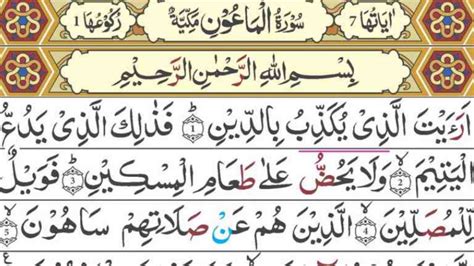 اٰیَاتُهَا 7 سُوْرَةُ الْمَاعُوْنِ مَكِّيَّةٌ رُكُوْعُهَا 1
بِسْمِ اللهِ الرَّحْمٰنِ الرَّحِيْمِ
اَرَءَيْتَ الَّذِىْ يُكَذِّبُ بِالدِّيْنِ ۝1 فَذٰلِكَ الَّذِىْ يَدُعُّ
الْيَتِيْمَ ۝2 وَلَا يَحُضُّ عَلٰى طَعَامِ الْمِسْكِيْنِ ۝3 فَوَيْلٌ
لِّلْمُصَلِّيْنَ ۝4 الَّذِيْنَ هُمْ عَنْ صَلَاتِهِمْ سَاهُوْنَ ۝5